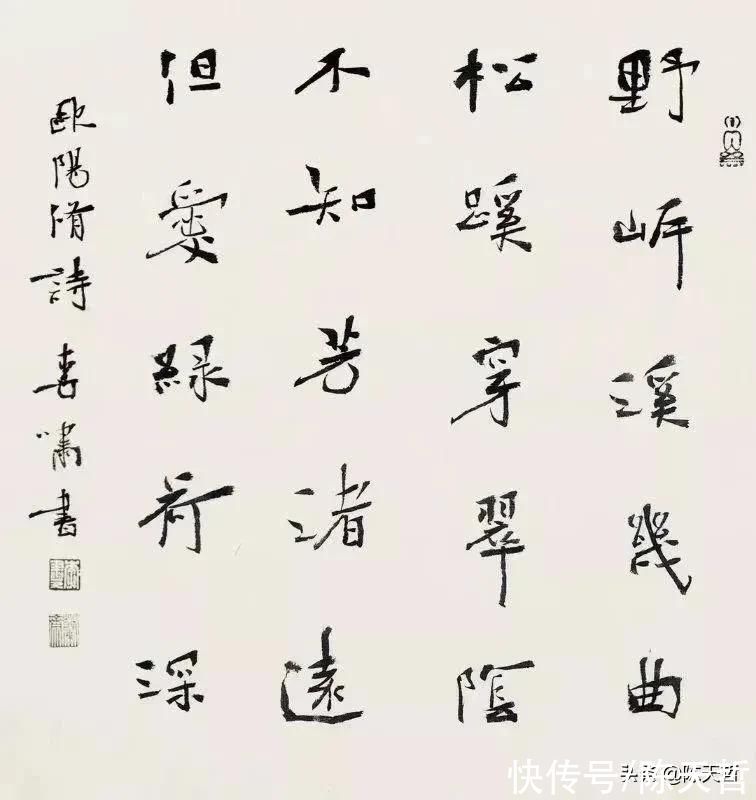 野岸溪幾曲
松蹊穿翠陰
不知芳渚遠
但愛綠荷深
歐陽脩詩 春嘯書
快传号/陈天哲
头条@陈天哲